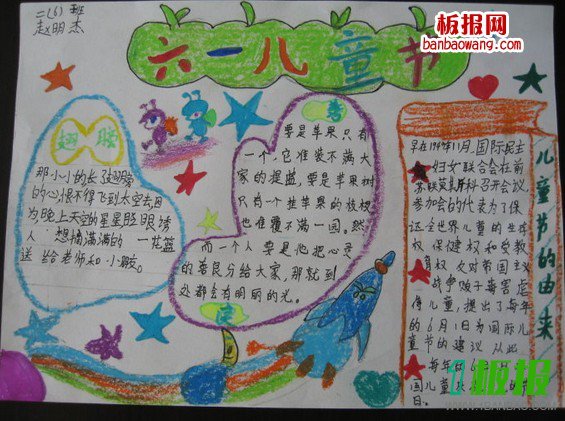 二(6)班
赵明杰
六一儿童节
板报网
banbaowang.com
翅膀
那小小的长翅膀
的心恨不得飞到太空去因
为晚上天空的星星眨眼诱
人 想摘满满的 一花篮
送 给老师和小
要是苹果只有
一个,它准装不满大
家的提盆,要是苹果树
只有一个挂苹果的枝桠
也准覆不满一园。然
而一个人要是他把心灵
的善良分给大家,那就到
处都会有明丽的光。
儿童节的由来
早在1949年11月,国际民主
妇女联合会在前
苏联莫斯科召开会议,
参加会的代表为了保
证全世界儿童的生存
权 保健权和受教
育权 反对帝国主义
战争贩子毒害虐
待儿童,提出了每年
的6月1日为国际儿
童节的建议 从此
每年的6
国儿童
日。
板报